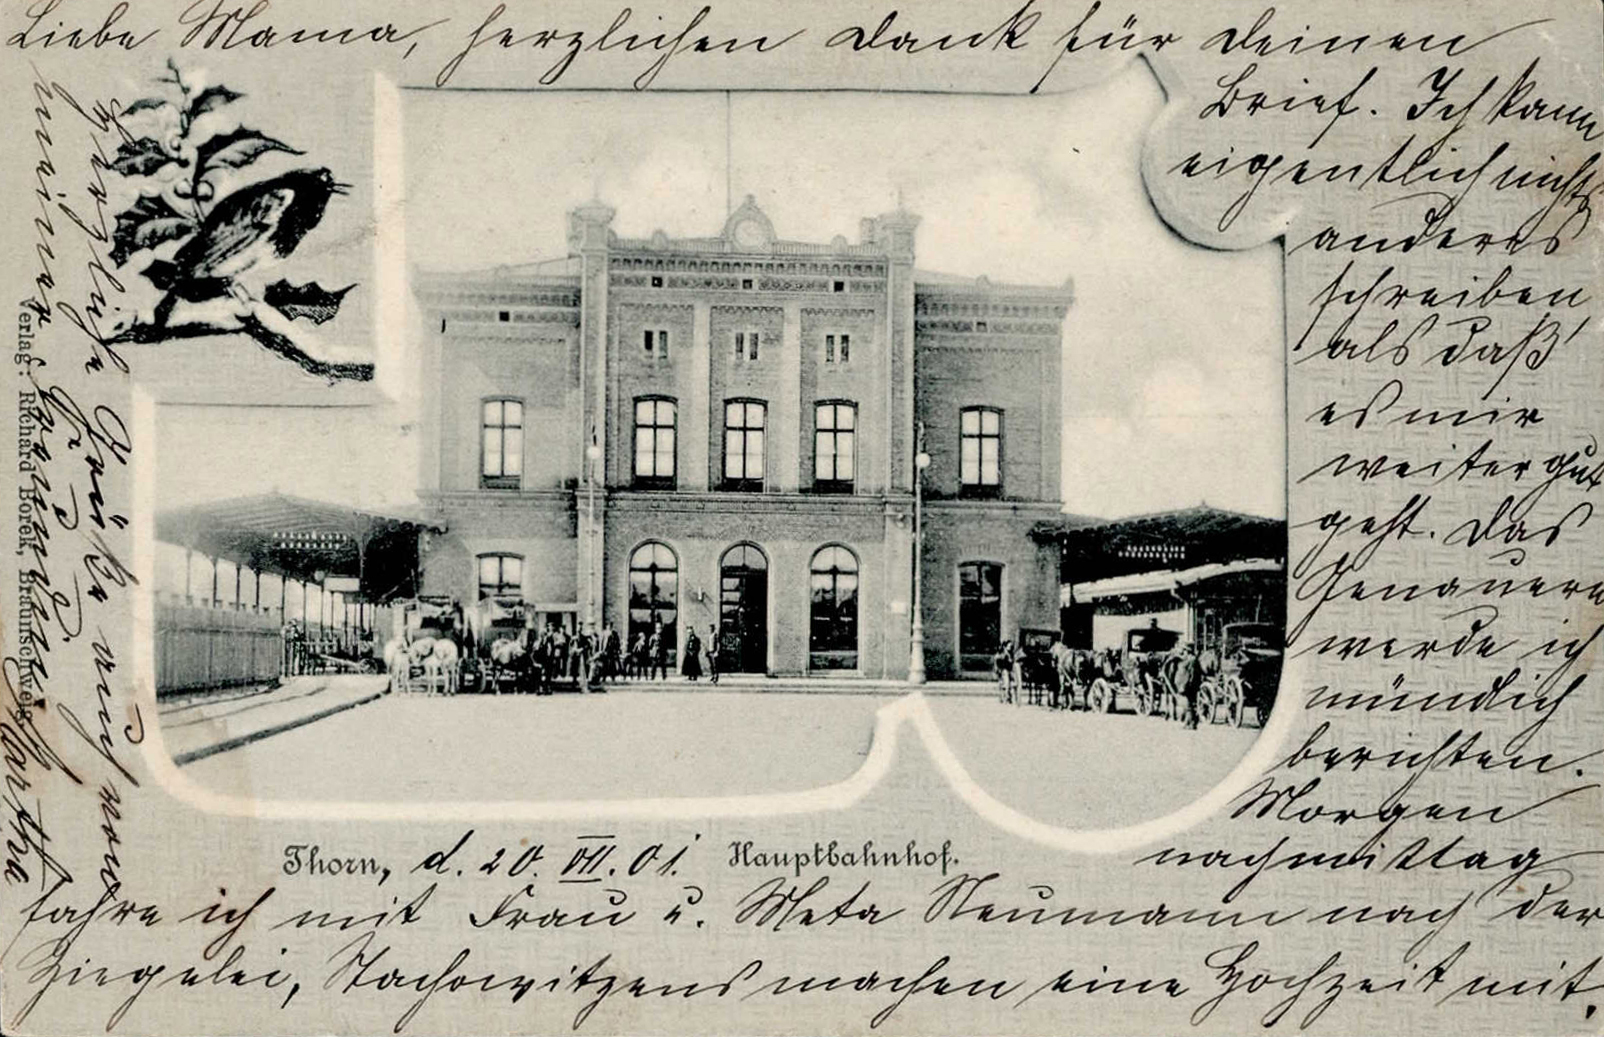 Liebe Mama, herzlichen Dank für Deinen
Brief. Ich kann
eigentlich nichts
anderes
schreiben,
als daß
es mir
weiter gut
geht. Das
Genauere
werde ich
mündlich
berichten.
Morgen
nachmittag
fahre ich mit Frau u. Meta Neumann nach der
Ziegelei, Stachowitzens machen eine Hochzeit mit.
Herzliche Grüße auch von
meiner Freundin
Martha
Thorn, d. 20. VII. 01. Hauptbahnhof.
Verlag: Richard Borek, Braunschweig.